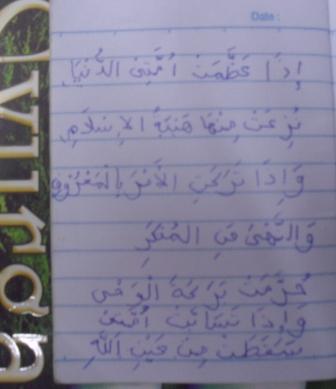 Date :
إِذَا عَظَّمَتْ اُمَّتِىْ الدُّنْيَا
نُزِعَتْ مِنْهَا هَيْبَةُ الاِسْلَامِ
وَاِذَا تَرَكَتِ الاَمْرَ بِالْمَعْرُوْفِ
وَالنَّهْىَ عَنِ المُنْكَرِ
حُرِّمَتْ بَرَكَةَ الْوَحْىِ
وَإِذَا تَسَابَّتْ اُمَّتِىْ
سَقَطَتْ مِنْ عَيْنِ اللّٰهِ